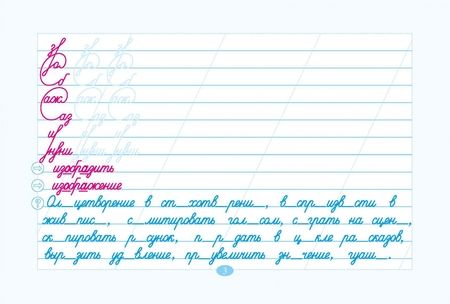 изобразить
изображение
Ол_цетворение в ст_хотв_рени_, в_спр_изв_сти в
жив_пис_, с_митировать гол_сом, с_грать на сцен_,
ск_пировать р_сунок, п_р_дать в ц_кле ра_сказов,
выр_зить уд_вление, пр_увеличить зн_чение, гуаш_.
3